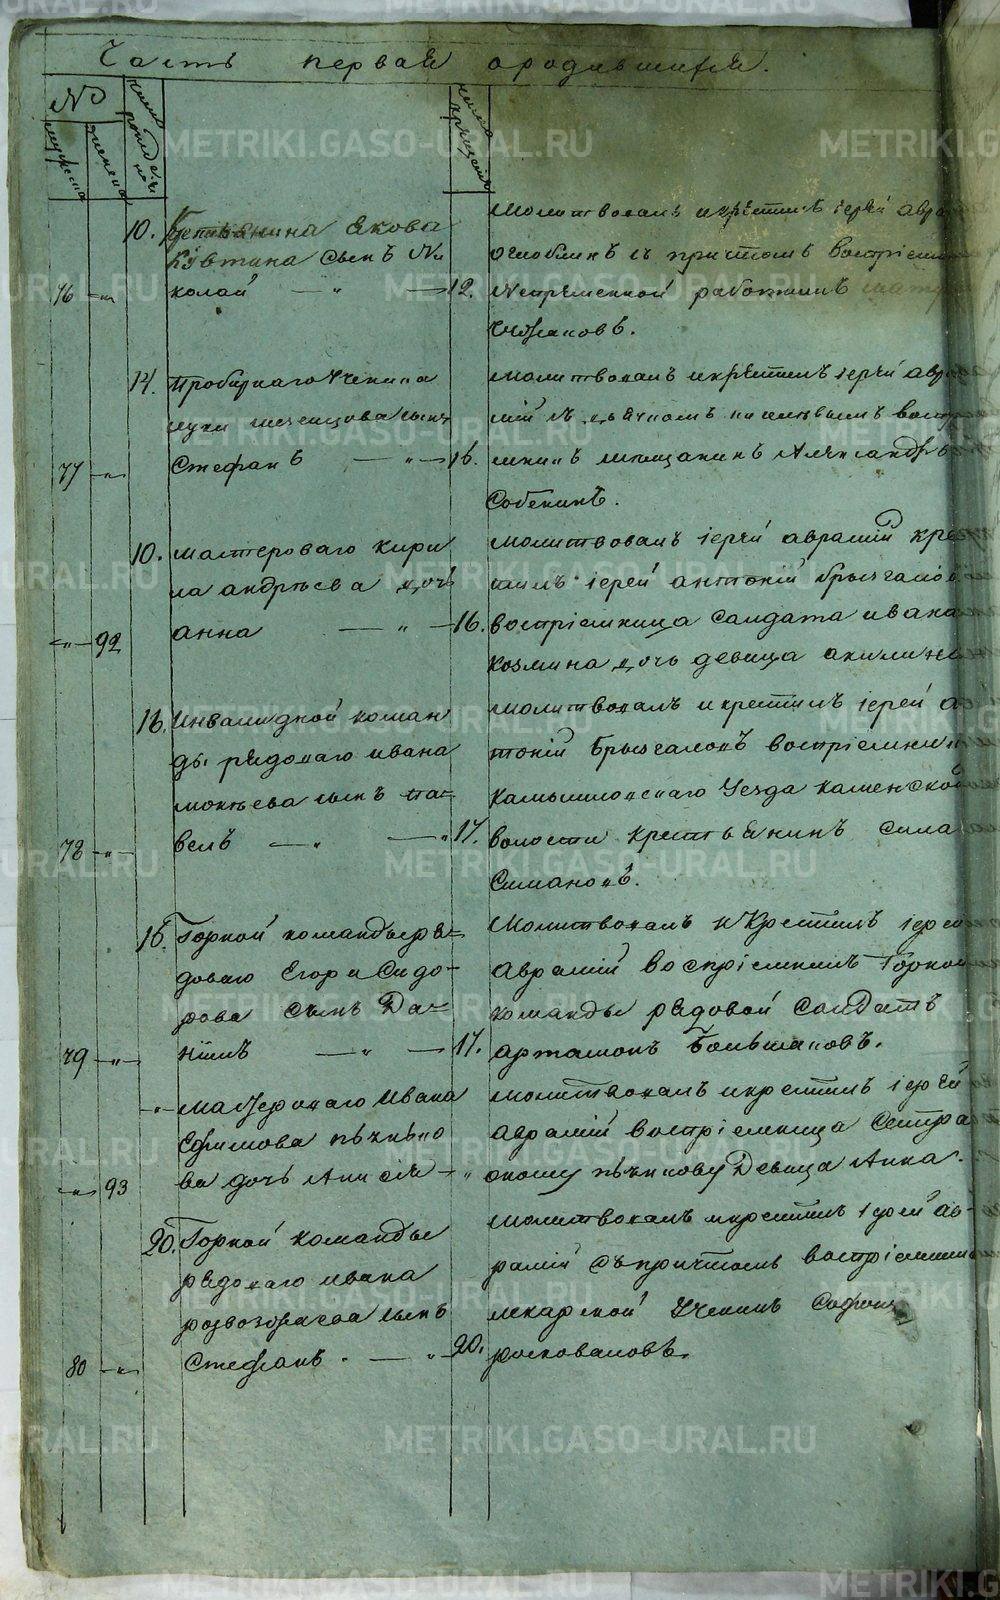 Часть первая о родившихся.
№
мужеска
женска
число рожденія
число крещенія
10. Крестьянина Якова
Кувтина сынъ Ни
76 колай 12.
Молитвовалъ и крѣстилъ іерей авра
Оглоблинъ съ причтомъ воспріемни
Непремѣнной работникъ
14. Пробирнаго Ученика
луки сынъ
77 Стефанъ 16.
Молитвовалъ и крѣстилъ іерей авра
мій съ дьячкомъ воспрі
мѣщанинъ Александръ
Собенинъ.
10. мастероваго кири
ла андрѣева дочь
92 анна 16.
Молитвовалъ іерей аврамій кре
тилъ іерей антоній брызгаловъ
воспріемница Салдата ивана
козмина дочь девица акилина
16. Инвалидной коман
ды рядоваго ивана
мокѣева сынъ па-
78 велъ 17.
Молитвовалъ и крестилъ іерей ан
тоній Брызгаловъ воспріемникъ
Камышловскаго Уезда каменской
волости крестьянинъ сила
Симановъ.
16. Горной команды ря-
доваго Егора Сидо-
рова сынъ Да-
79 ніилъ 17.
Молитвовалъ и Крестилъ іерей
Аврамій воспріемникъ Горной
команды рядовой Солдатъ
артамонъ Большаковъ.
мастероваго Ивана
Ефимова пѣчнѣко
93 ва дочь Анисія
Молитвовалъ и крестилъ іерей
Аврамій воспріемница Сестра
оному пѣчнкову Девица Анна.
20. Горной команды
рядоваго ивана
розвозжаева сынъ
80 Стефанъ. 20.
Молитвовалъ и крестилъ іерей ав-
рамій съ причтомъ воспріемникъ
лекарской Ученикъ Софонъ
росковаловъ.
METRIKI.GASO-URAL.RU